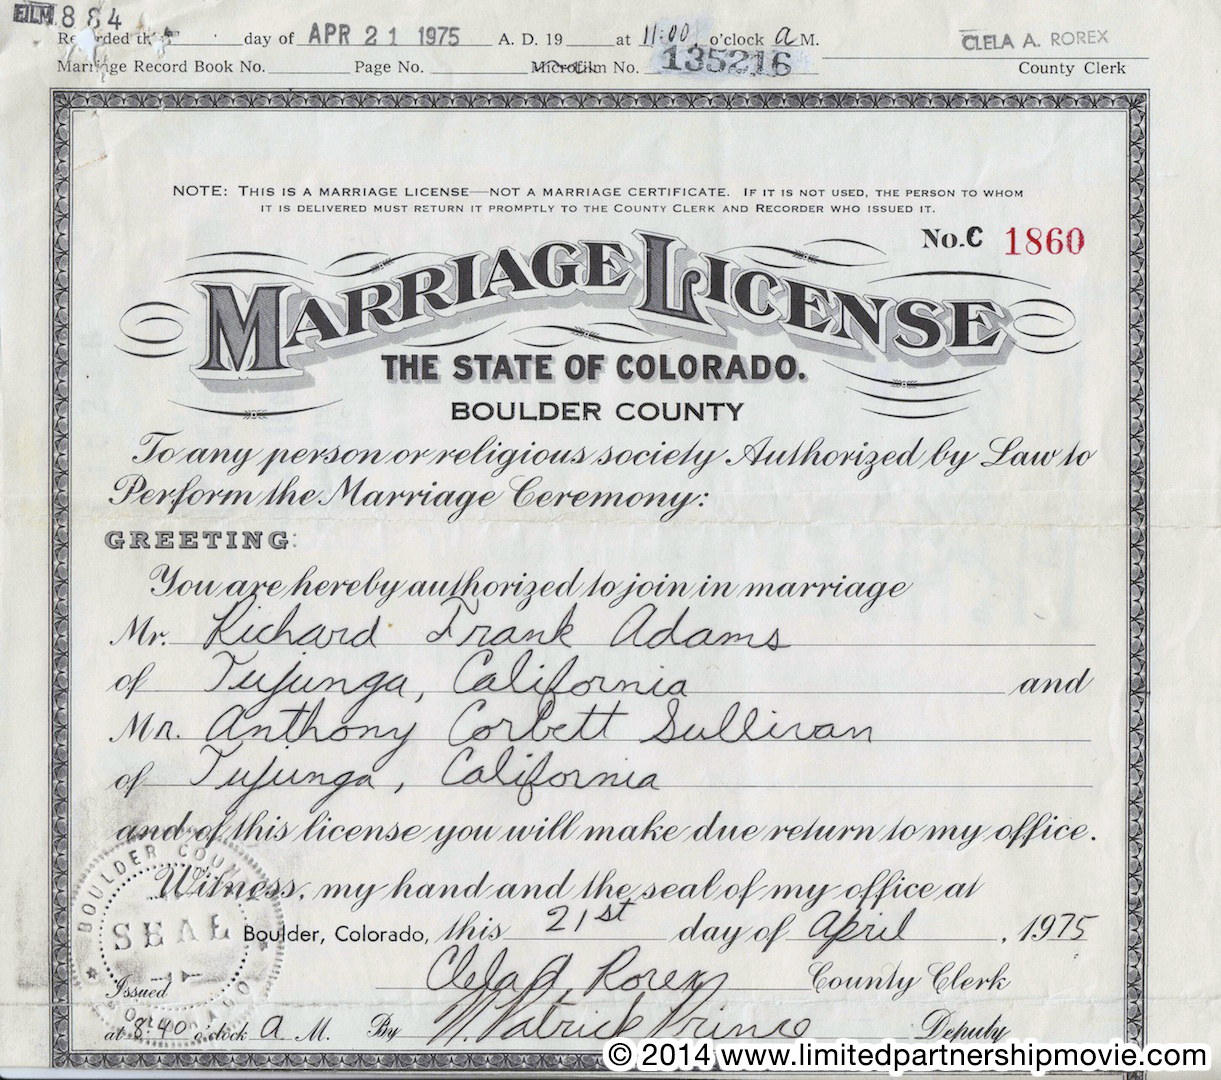 FILM 884
Recorded this day of APR 21 1975 A. D. 19 at 11:00 o'clock a M. CLELA A. ROREX
Marriage Record Book No. Page No. Microfilm No. 135216 County Clerk
NOTE: THIS IS A MARRIAGE LICENSE—NOT A MARRIAGE CERTIFICATE. IF IT IS NOT USED, THE PERSON TO WHOM
IT IS DELIVERED MUST RETURN IT PROMPTLY TO THE COUNTY CLERK AND RECORDER WHO ISSUED IT.
No. C 1860
MARRIAGE LICENSE
THE STATE OF COLORADO.
BOULDER COUNTY
To any person or religious society Authorized by Law to
Perform the Marriage Ceremony:
GREETING:
You are hereby authorized to join in marriage
Mr. Richard Frank Adams
of Tujunga, California and
Mr. Anthony Corbett Sullivan
of Tujunga, California
and of this license you will make due return to my office.
Witness, my hand and the seal of my office at
Boulder, Colorado, this 21st day of April, 1975
Clela A. Rorex County Clerk
Issued
at 8:40 o'clock A M. By N. Patrick Prince Deputy
BOULDER COUNTY
SEAL
COLORADO
© 2014 www.limitedpartnershipmovie.com